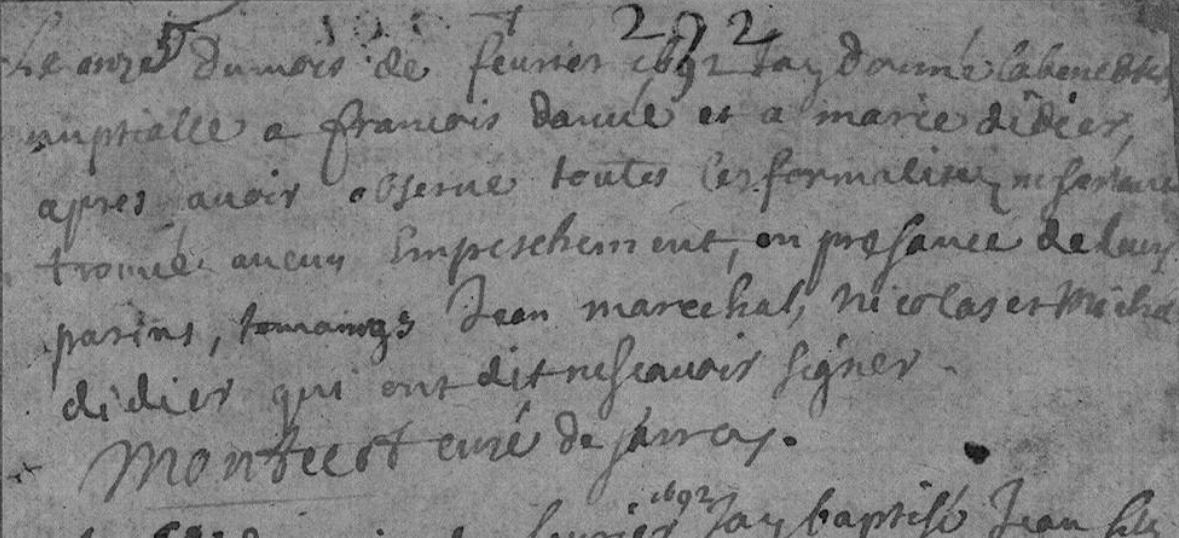 292
Le onze du mois de feurier 1692 Jay donné la benedict
nuptialle a francois danué et a marie didier,
apres auoir obserue toutes les formalitez ne
trouué aucun Empeschement, en presance de leurs
parins, Jean marechal, Nicolas et Michel
didier qui ont dit ne scauoir signer.
curé de Jarrey.
feurier 1692 Jay baptisé Jean